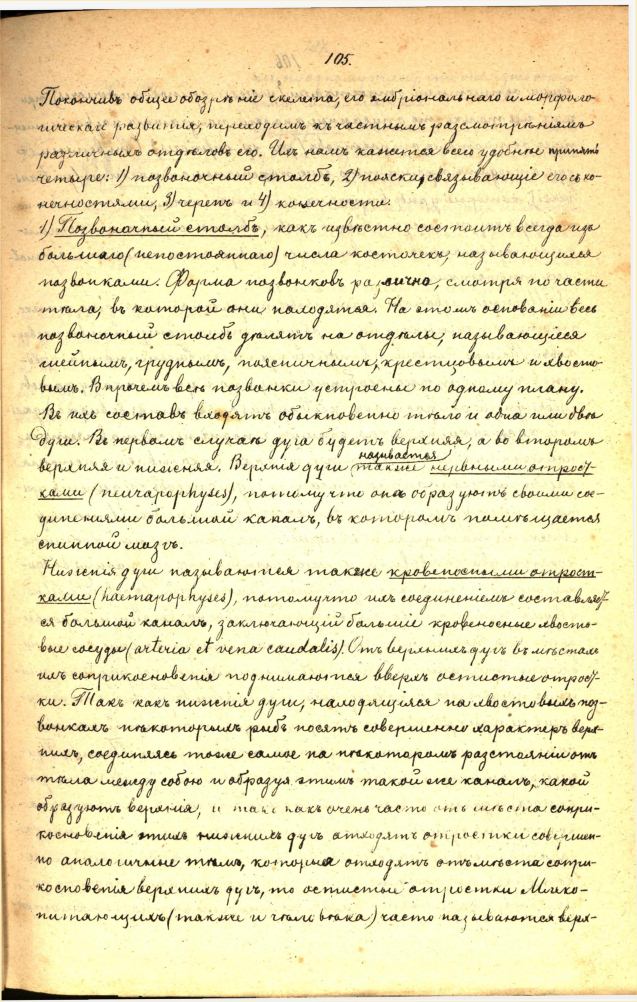 105.
Покончивъ общее обозрѣніе скелета, его эмбріональнаго и морфоло-
гическаго развитія, переходимъ къ частнымъ разсмотрѣніямъ
различныхъ отдѣловъ его. Ихъ намъ кажется всего удобнѣе принять
четыре: 1) позвоночный столбъ, 2) пояски, связывающіе его съ ко-
нечностями, 3) черепъ и 4) конечности.
1) Позвоночный столбъ, какъ извѣстно состоитъ всегда изъ
большаго (непостояннаго) числа косточекъ, называющихся
позвонками. Форма позвонковъ различна, смотря по части
тѣла, въ которой они находятся. На этомъ основаніи весь
позвоночный столбъ дѣлятъ на отдѣлы, называющіеся
шейнымъ, груднымъ, поясничнымъ, крестцовымъ и хвосто-
вымъ. Впрочемъ всѣ позвонки устроены по одному плану.
Въ ихъ составъ входятъ обыкновенно тѣло и одна или двѣ
дуги. Въ первомъ случаѣ дуга будетъ верхняя, а во второмъ
верхняя и нижняя. Верхнія дуги называются также нервными отрост-
ками (neurapophyses), потому что онѣ образуютъ своими сое-
диненіями большой каналъ, въ которомъ помѣщается
спинной мозгъ.
Нижнія дуги называются также кровеносными отрост-
ками (haemapophyses), потомучто ихъ соединеніемъ составляет-
ся большой каналъ, заключающій большіе кровеносные хвосто-
вые сосуды (arteria et vena caudalis). Отъ верхнихъ дугъ въ мѣстахъ
ихъ соприкосновенія поднимаются вверхъ остистые отрост-
ки. Такъ какъ нижнія дуги, находящіяся на хвостовыхъ поз-
вонкахъ нѣкоторыхъ рыбъ носятъ совершенно характеръ верх-
нихъ, соединяясь тоже самое на нѣкоторомъ разстояніи отъ
тѣла между собою и образуя этимъ такой же каналъ, какой
образуютъ верхнія, и такъ какъ очень часто отъ мѣста сопри-
косновенія этихъ нижнихъ дугъ отходятъ отростки совершен-
но аналогичные тѣмъ, которые отходятъ отъ мѣста сопри-
косновенія верхнихъ дугъ, то остистые отростки Млеко-
питающихъ (также и человѣка) часто называются верх-